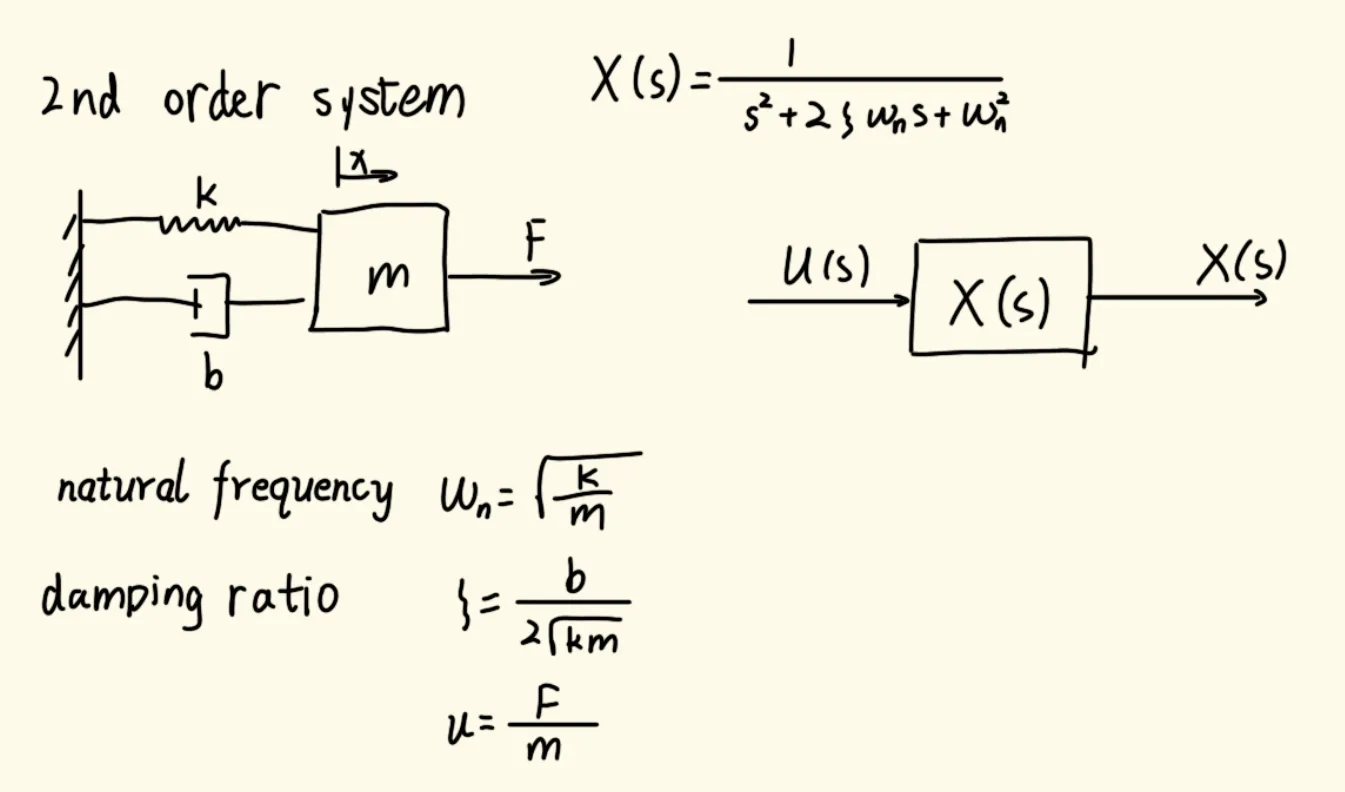 2nd order system
X(s) = 1 / (s² + 2ζ ωₙ s + ωₙ²)
x
k
m
F
b
U(s)
X(s)
X(s)
natural frequency ωₙ = √(k/m)
damping ratio ζ = b / (2√(km))
u = F/m